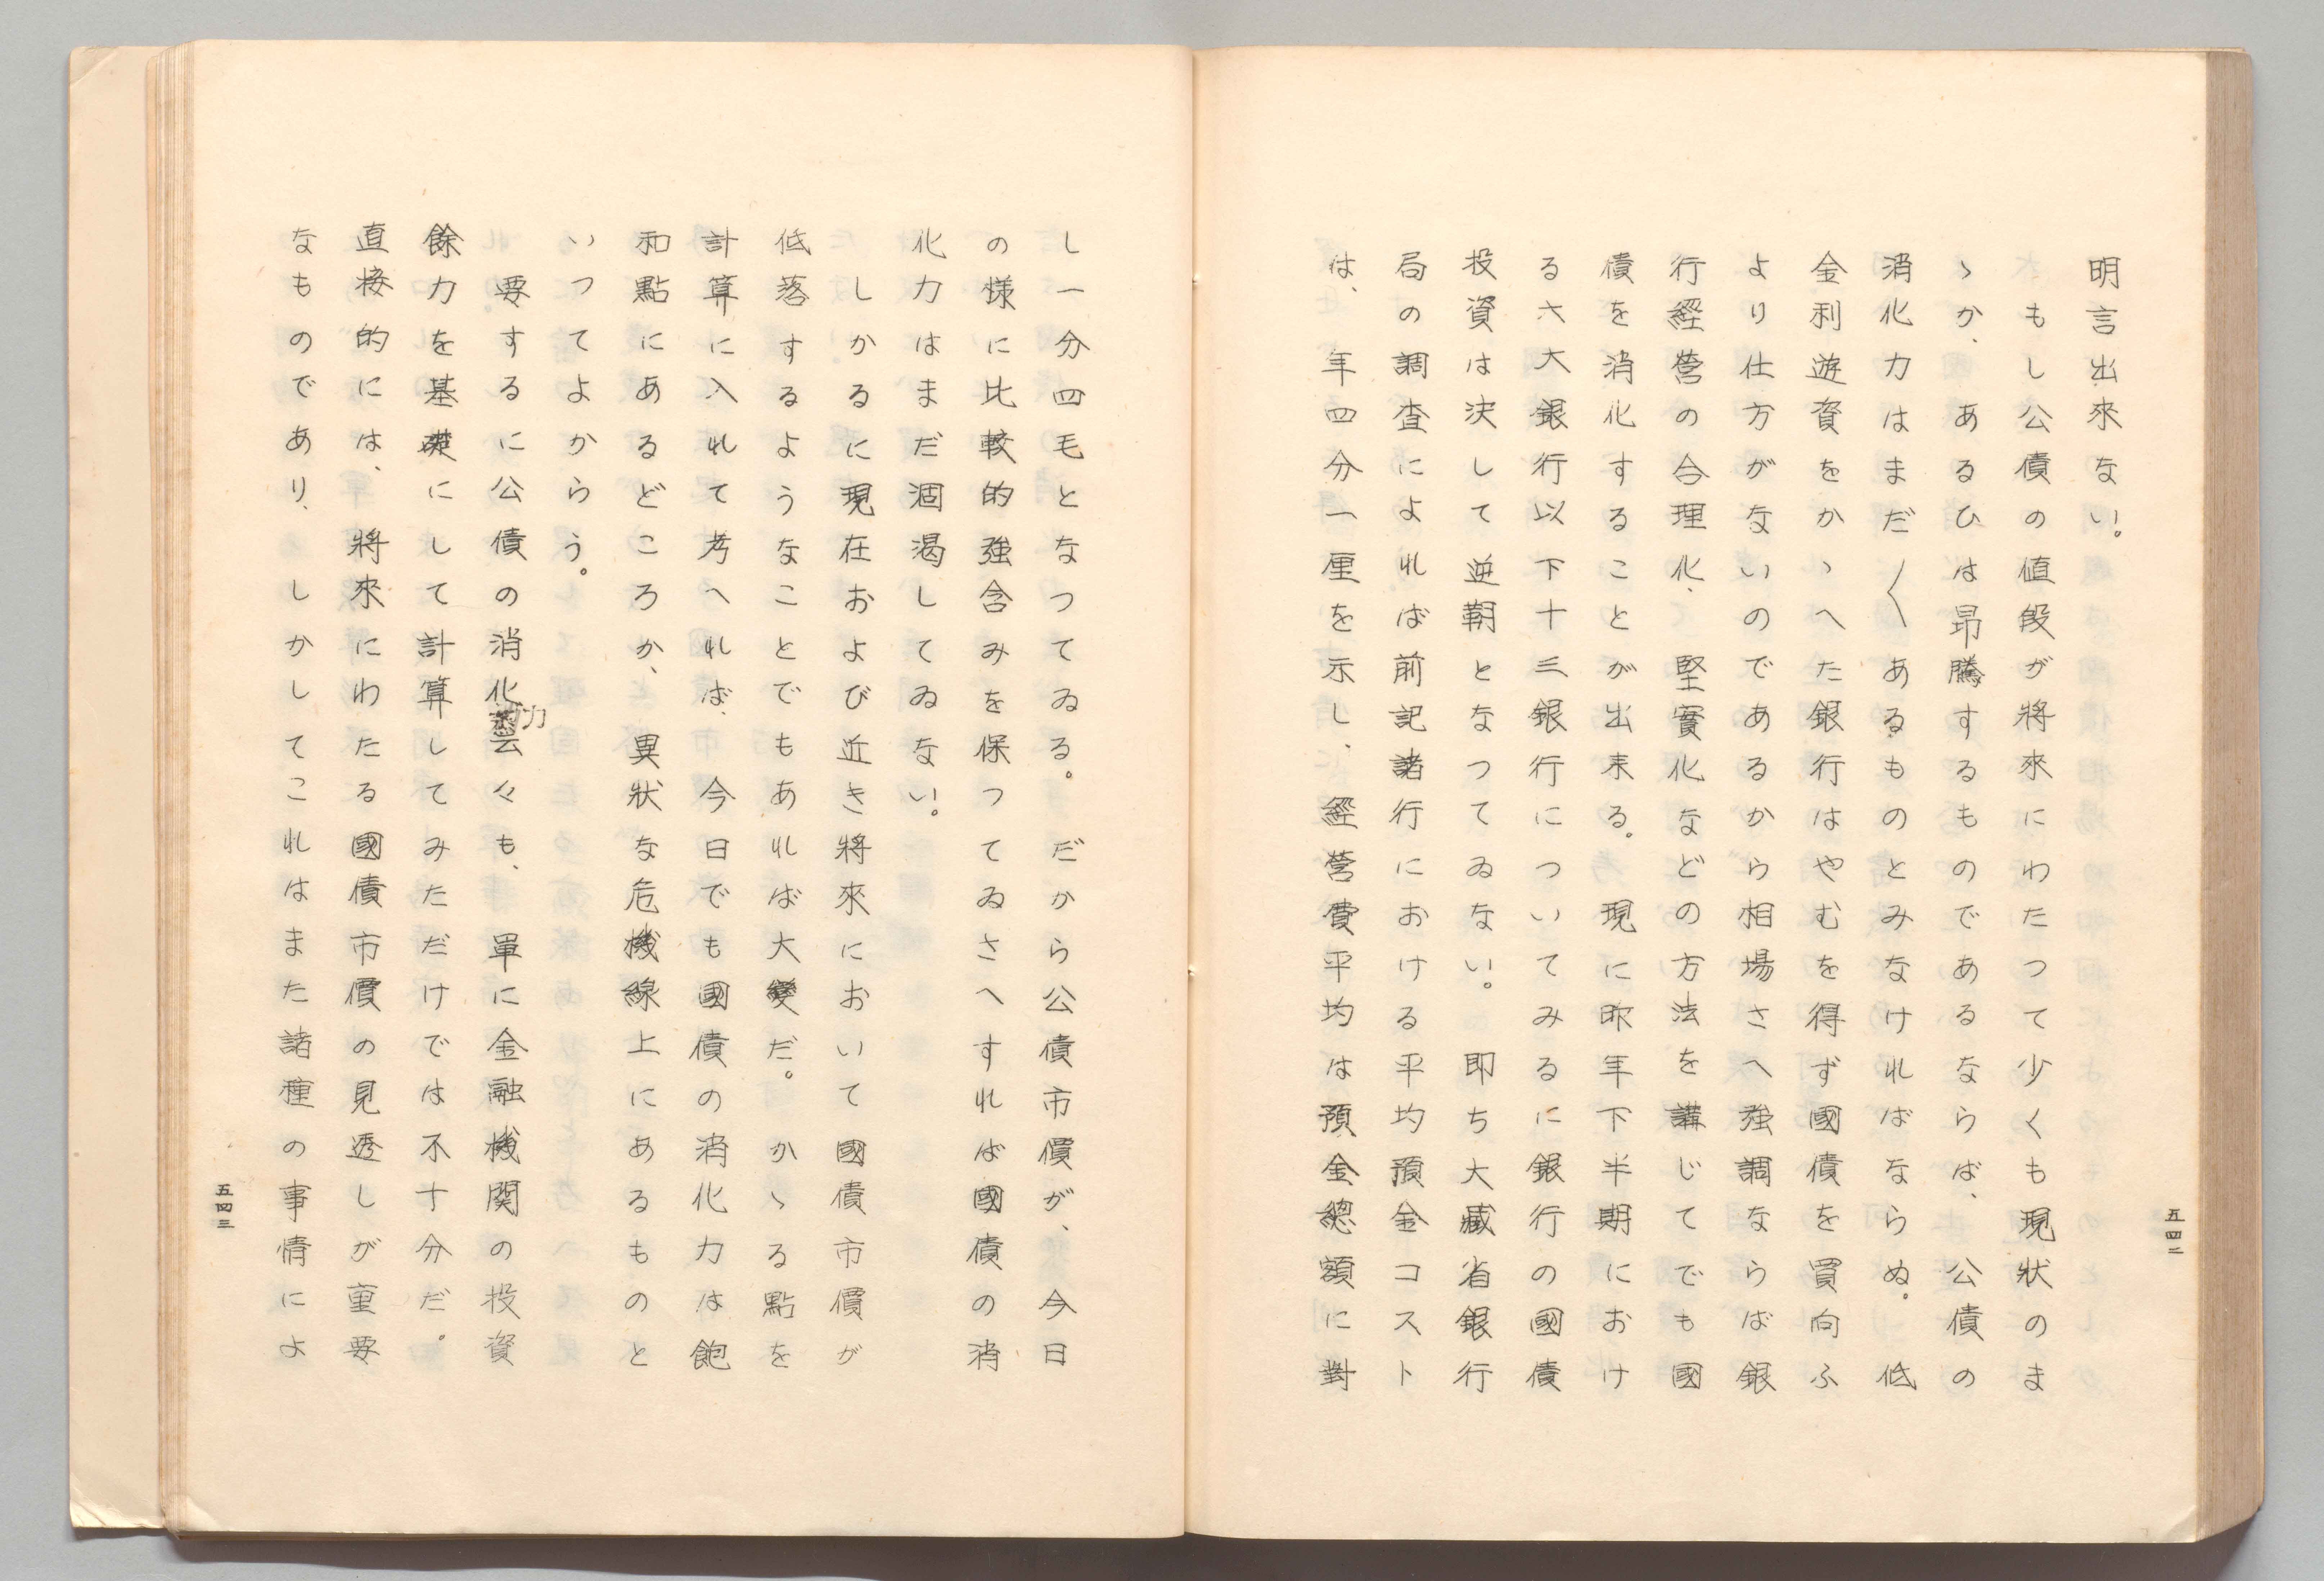 明言出來ない。
もし公債の値段が將來にわたつて少くも現狀のま
ゝか、あるひは昂騰するものであるならば、公債の
消化力はまだ〱あるものとみなければならぬ。低
金利遊資をかゝへた銀行はやむを得ず國債を買向ふ
より仕方がないのであるから相場さへ強調ならば銀
行經營の合理化、堅實化などの方法を講じてでも國
債を消化することが出来る。現に昨年下半期におけ
る六大銀行以下十三銀行についてみるに銀行の國債
投資は決して逆鞘となつてゐない。即ち大藏省銀行
局の調査によれば前記諸行における平均預金コスト
は、年四分一厘を示し、經營費平均は預金總額に對
五四二
し一分四毛となつてゐる。だから公債市價が、今日
の様に比較的強含みを保つてゐさへすれば國債の消
化力はまだ涸渇してゐない。
しかるに現在および近き將來において國債市價が
低落するようなことでもあれば大變だ。かゝる點を
計算に入れて考へれば、今日でも國債の消化力は飽
和點にあるどころか、異狀な危機線上にあるものと
いつてよからう。
要するに公債の消化力云々も、單に金融機関の投資
餘力を基礎にして計算してみただけでは不十分だ。
直接的には、將來にわたる國債市價の見透しが重要
なものであり、しかしてこれはまた諸種の事情によ
五四三